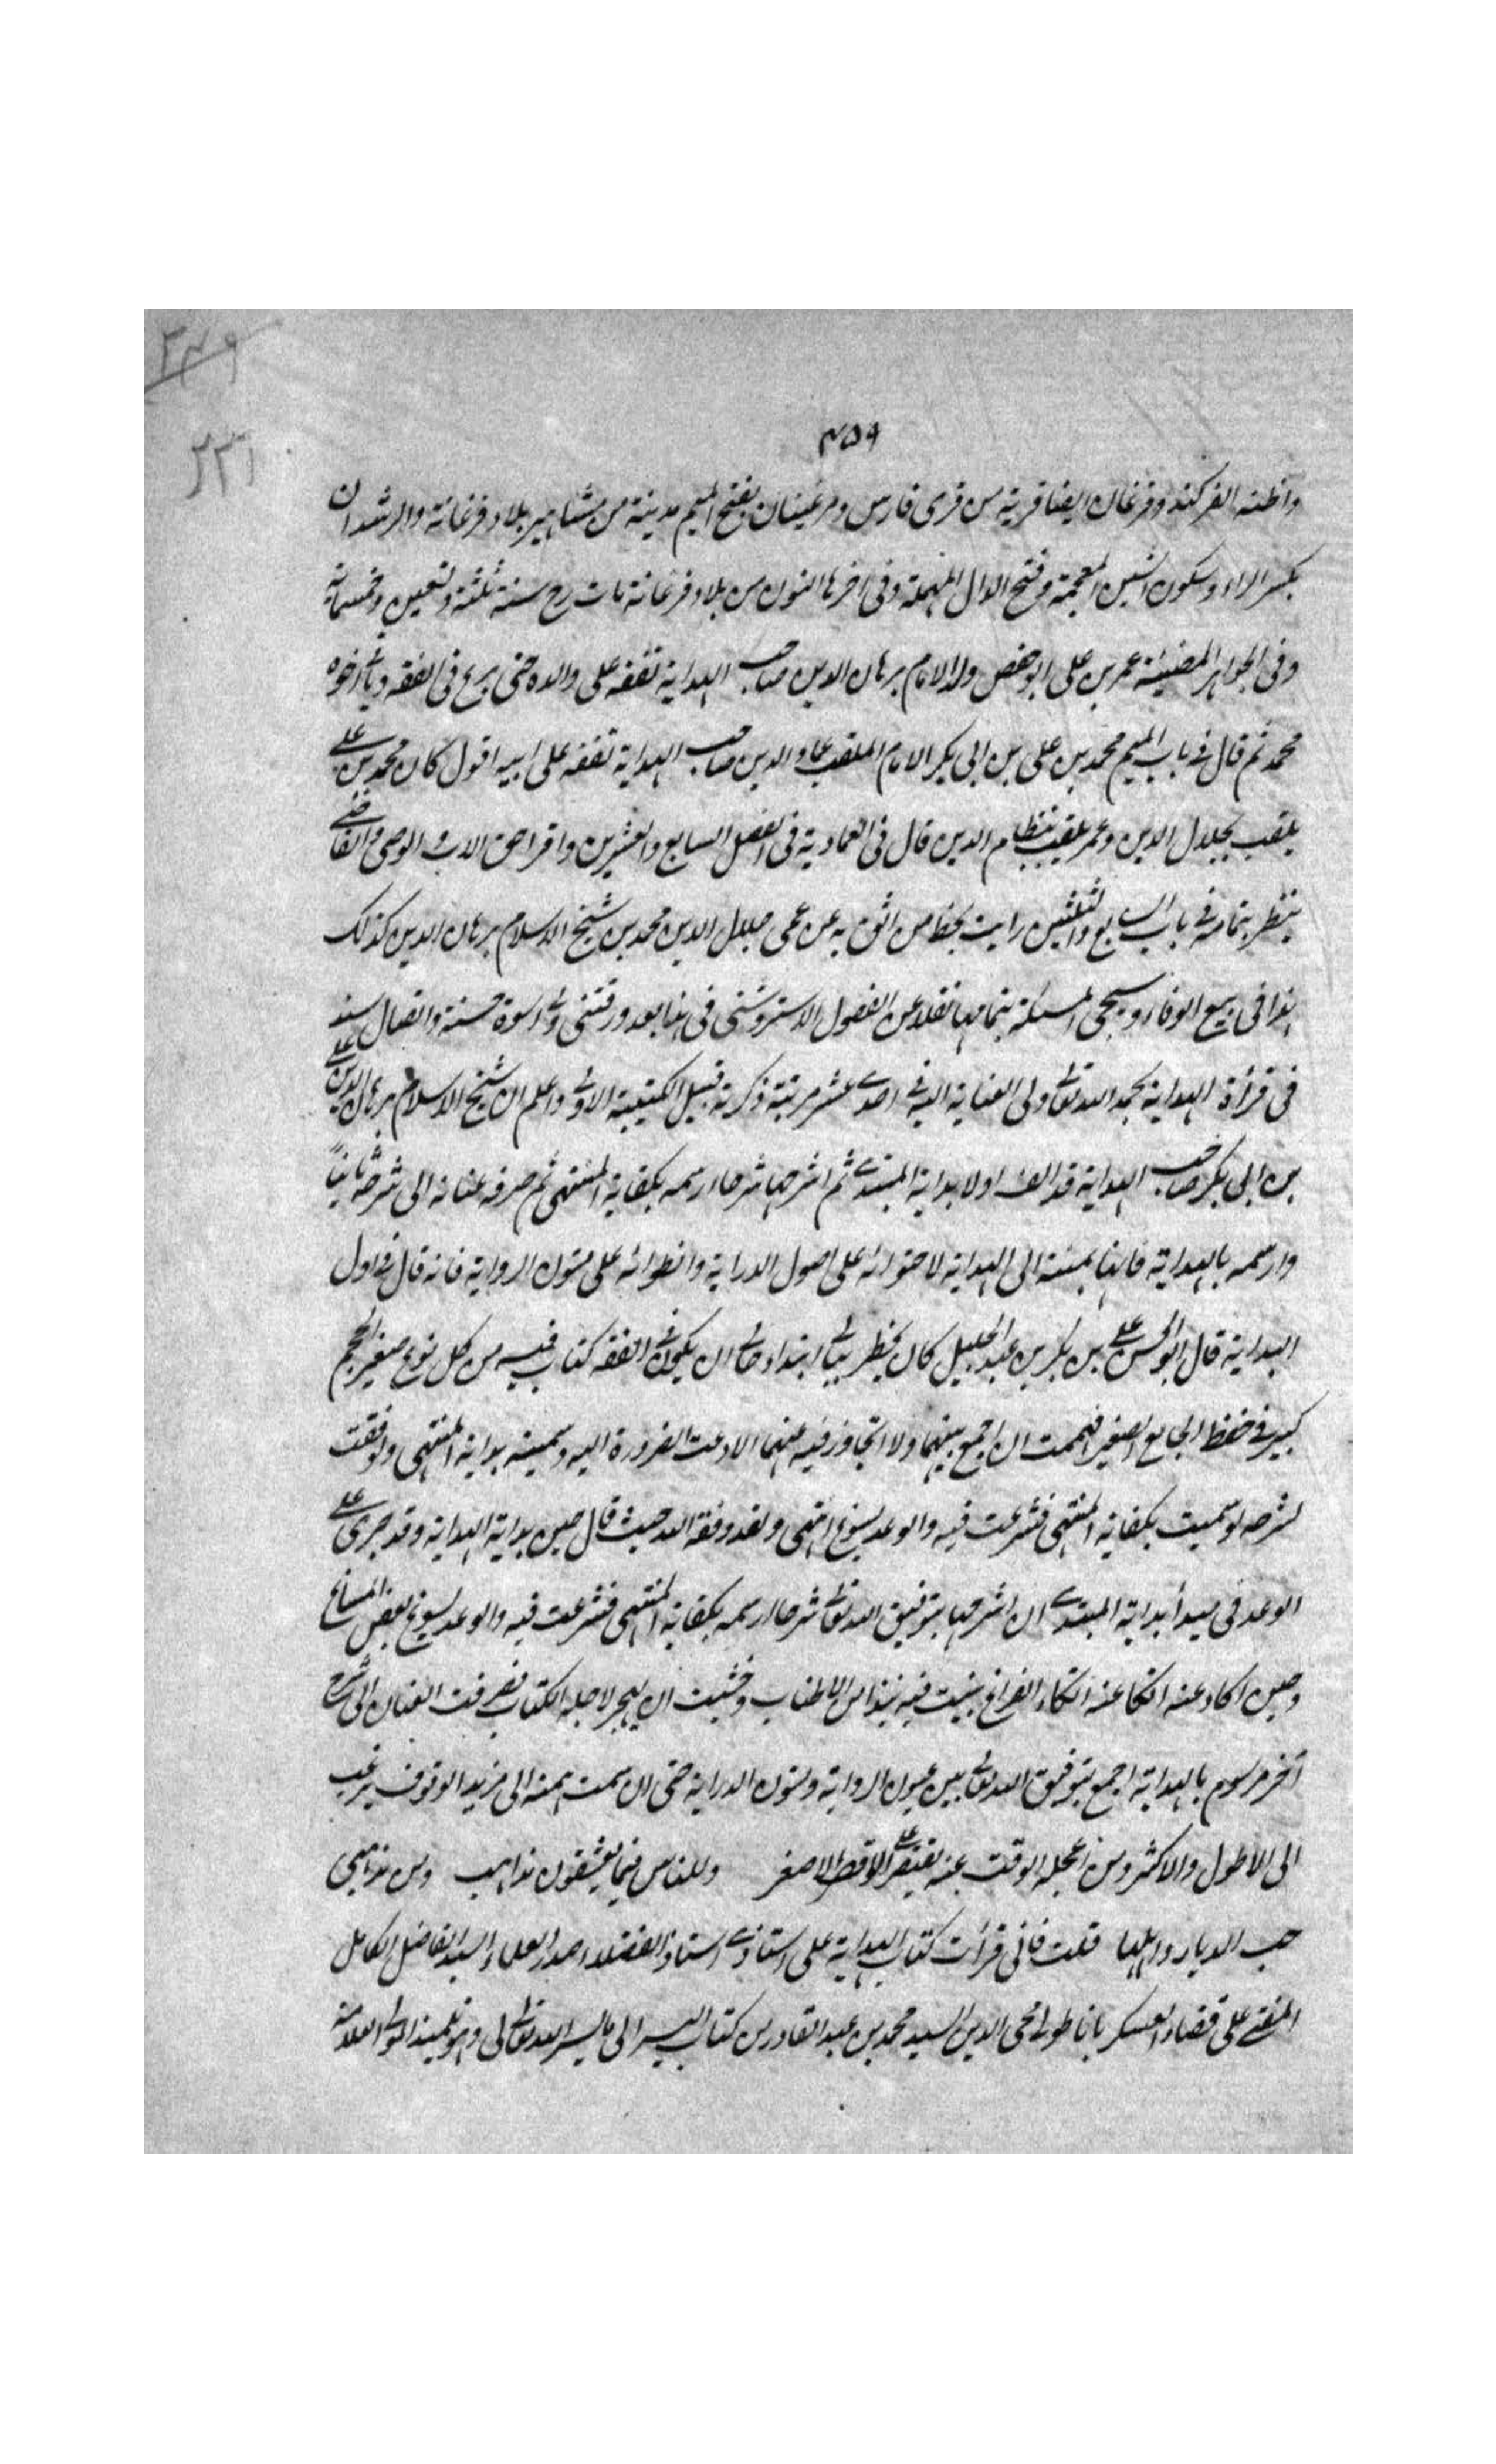 ٣٤٩
٢٣١
٤٥٩
واظنه الفركند وفرغان ايضا قرية من قرى فارس ومرغينان بفتح الميم مدينة من مشاهير بلاد فرغانة والرشدان
بكسر الراء وسكون الشين المعجمة وفتح الدال المهملة وفى اخرها النون من بلاد فرغانة مات رح سنة ثلثة وتسعين وخمسمائة
وفى الجواهر المضيئة عمر بن على ابو حفص ولد الامام برهان الدين صاحب الهداية تفقه على والده حتى برع فى الفقه وياتى اخوه
محمد ثم قال فى باب الميم محمد بن على بن ابى بكر الامام الملقب عماد الدين صاحب الهداية تفقه على ابيه اقول كان محمد بن على
يلقب بجلال الدين وعمر يلقب بنظام الدين قال فى العمادية فى الفصل السابع والعشرين واقراض الاب والوصى والقاضى
ينظر بتمامه فى باب السابع والثلثين رايت بخط من اثق به عن عمى جلال الدين محمد بن شيخ الاسلام برهان الدين كذلك
هذا فى بيع الوفاء وسيجئ المسئلة بتمامها نقلا عن الفصول الاستروشنى فى هنا بعد ورقتنى ولى اسوة حسنة واتصال سند
فى قراءة الهداية بحمد الله تعالى ولى العناية اليه فى احدى عشر مرتبة ذكرته قبيل الكتيبة الاولى واعلم ان شيخ الاسلام برهان الدين على
بن ابى بكر صاحب الهداية قد الف اولا بداية المبتدى ثم اشرحها شرحا ارسمه بكفاية المنتهى ثم صرف عنانه الى شرحه ثانيا
وارسمه بالهداية فانها بمنة الى الهداية لاحتوائه على اصول الدراية وانطوائه على متون الرواية فانه قال فى اول
البداية قال ابو الحسن على بن بكر بن عبد الجليل كان يخطر ببالى ابتداء حالى ان يكون فى الفقه كتاب فيه من كل نوع صغير الحجم
كبير فى حفظ الجامع الصغير فهممت ان اجمع بينهما ولا اتجاوز فيه عنهما الا دعت الضرورة اليه وسميته بداية المنتهى ولو وفقت
لشرحه لو سميت بكفاية المنتهى فشرعت فيه والوعد يسوغ انتهى ولقد وفقه الله حيث قال حين بداية الهداية وقد جرى على
الوعد فى مبدأ بداية المبتدى ان اشرحها بتوفيق الله تعالى شرحا ارسمه بكفاية المنتهى فشرعت فيه والوعد يسوغ بعض المساغ
وحين اكاد عنه اتكا عنه اتكاء الفراغ تبينت فيه نبذا من الاطناب وخشيت ان يهجر لاجله الكتاب فصرفت العنان الى شرح
آخر مرسوم بالهداية اجمع بتوفيق الله تعالى بين عيون الرواية ومتون الدراية حتى ان سمت همته الى مزيد الوقوف يرغب
الى الاطول والاكثر ومن اعجله الوقت عنه يقتصر على الاقصر الاصغر وللناس فيما يعشقون مذاهب ومن مذهبى
حب الديار واهلها قلت فانى قرأت كتاب الهداية على استاذى استاذ الفضلاء صدر العلماء السيد الفاضل الكامل
المفتى على قضاء العسكر باناطولى محى الدين السيد محمد بن عبد القادر من كتاب السير الى ما يسر الله تعالى لى وهو تلميذ المولى العلامة